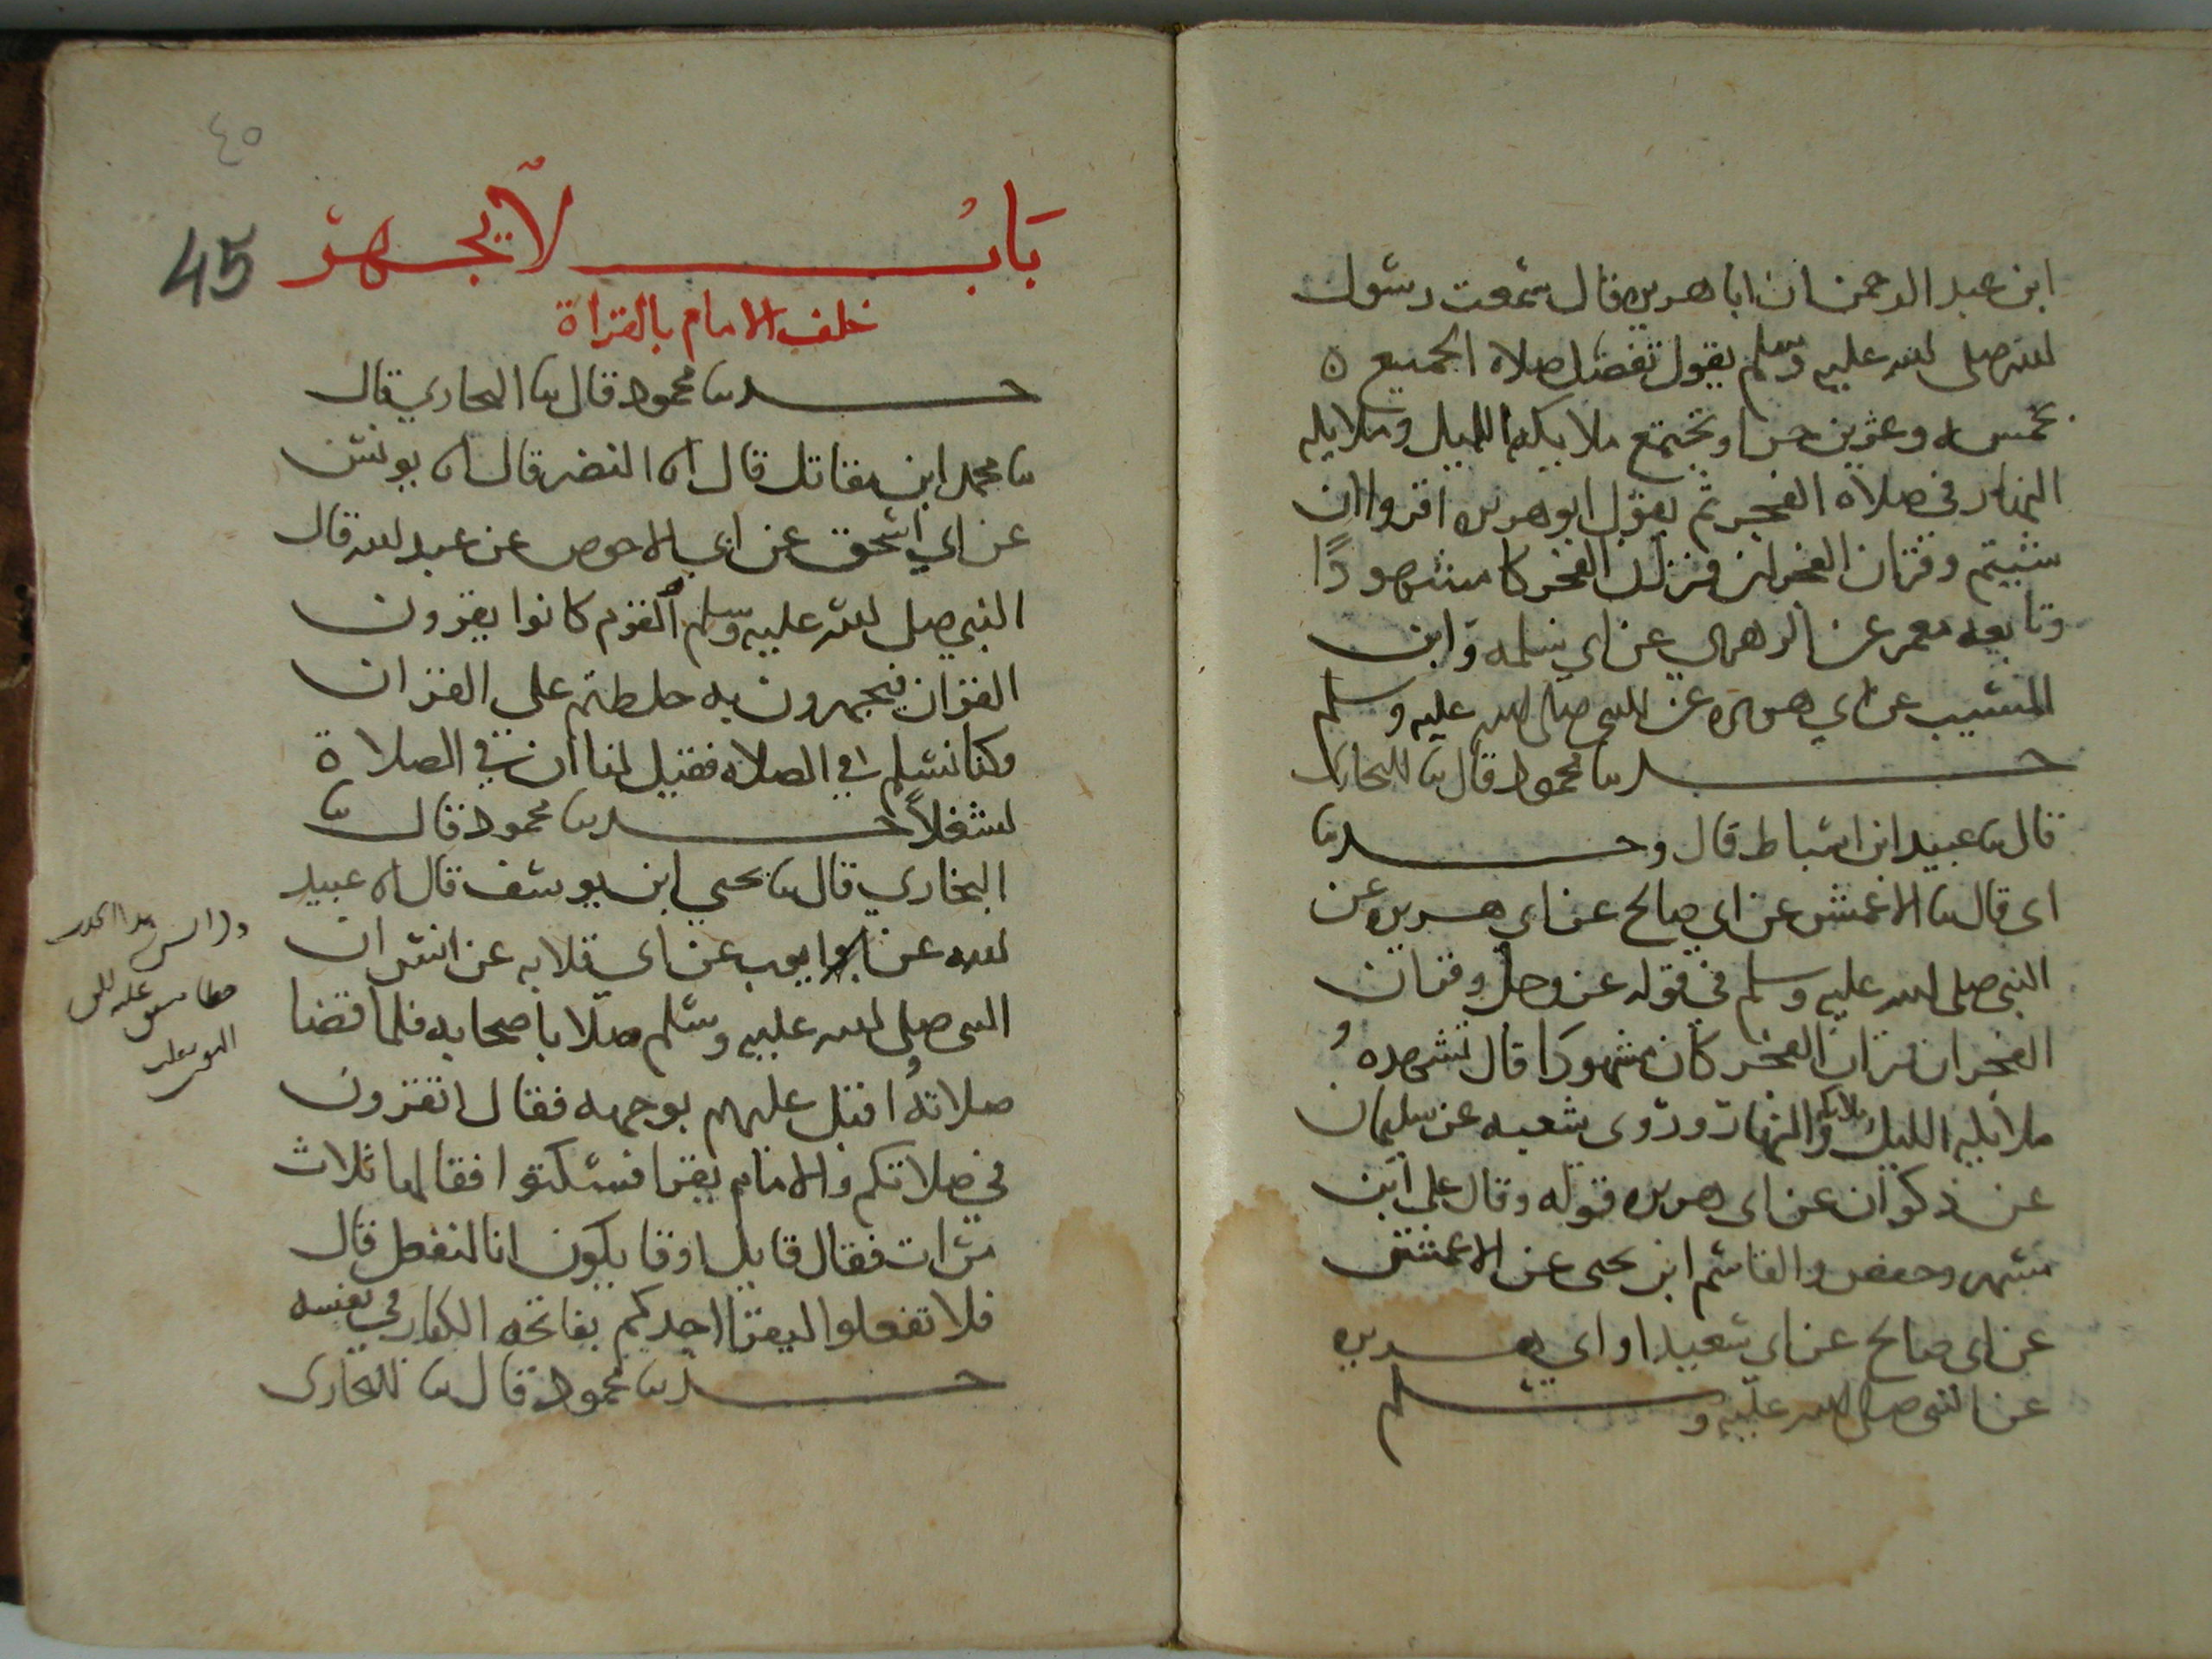 ابن عبد الرحمن ان ابا هريره قال سمعت رسول
الله صلى الله عليه وسلم يقول تفضل صلاه الجميع ه
بخمسه وعشرين جزا وتجتمع ملايكه الليل وملايكه
النهار في صلاه الفجر ثم يقول ابو هريره اقروا ان
شيتم وقران الفجر ان قران الفجر كا مشهودًا
وتابعه معمر عن الزهري عن ابي سلمه وابن
المسيب عن ابي هريره عن النبي صلى الله عليه وسلم
حدثنا محمود قال ثنا البخاري
قال ثنا عبيد ابن اسباط قال وحدثنا
ابى قال ثنا الاعمش عن ابي صالح عن ابي هريره عن
النبي صلى الله عليه وسلم في قوله عز وجل وقران
الفجر ان قران الفجر كان مشهودا قال تشهده
ملايكه الليل وملايكه النهار وروى شعبه عن سليمان
عن ذكوان عن ابى هريره قوله وقال على ابن
مسهر وحفص والقاسم ابن يحيى عن الاعمش
عن ابى صالح عن ابى سعيد او ابي هريره
عن النبي صلى الله عليه وسلم
٤٥
45
بَابُ لا يجهر
خلف الامام بالقراة
حدثنا محمود قال ثنا البخاري قال
ثنا محمد ابن مقاتل قال انا النضر قال انا يونس
عن ابي اسحق عن ابي الاحوص عن عبد الله قال
النبي صلى الله عليه وسلم لقوم كانوا يقرون
القران فيجهرون به خلطتم على القران
وكنا نسلم في الصلاه فقيل لنا ان في الصلاة
لشغلاً حدثنا محمود قال ثنا
البخاري قال ثنا يحيى ابن يوسف قال انا عبيد
الله عن ايوب عن ابي قلابه عن انس ان
النبي صلى الله عليه وسلم صلا باصحابه فلما قضا
صلاتهُ اقبل عليهم بوجهه فقال اتقرون
في صلاتكم والامام يقرا فسكتوا فقالها ثلاث
مرات فقال قايل او قايلون انا لنفعل قال
فلا تفعلوا ليقرا احدكم بفاتحه الكتاب في نفسه
حدثنا محمود قال ثنا البخاري